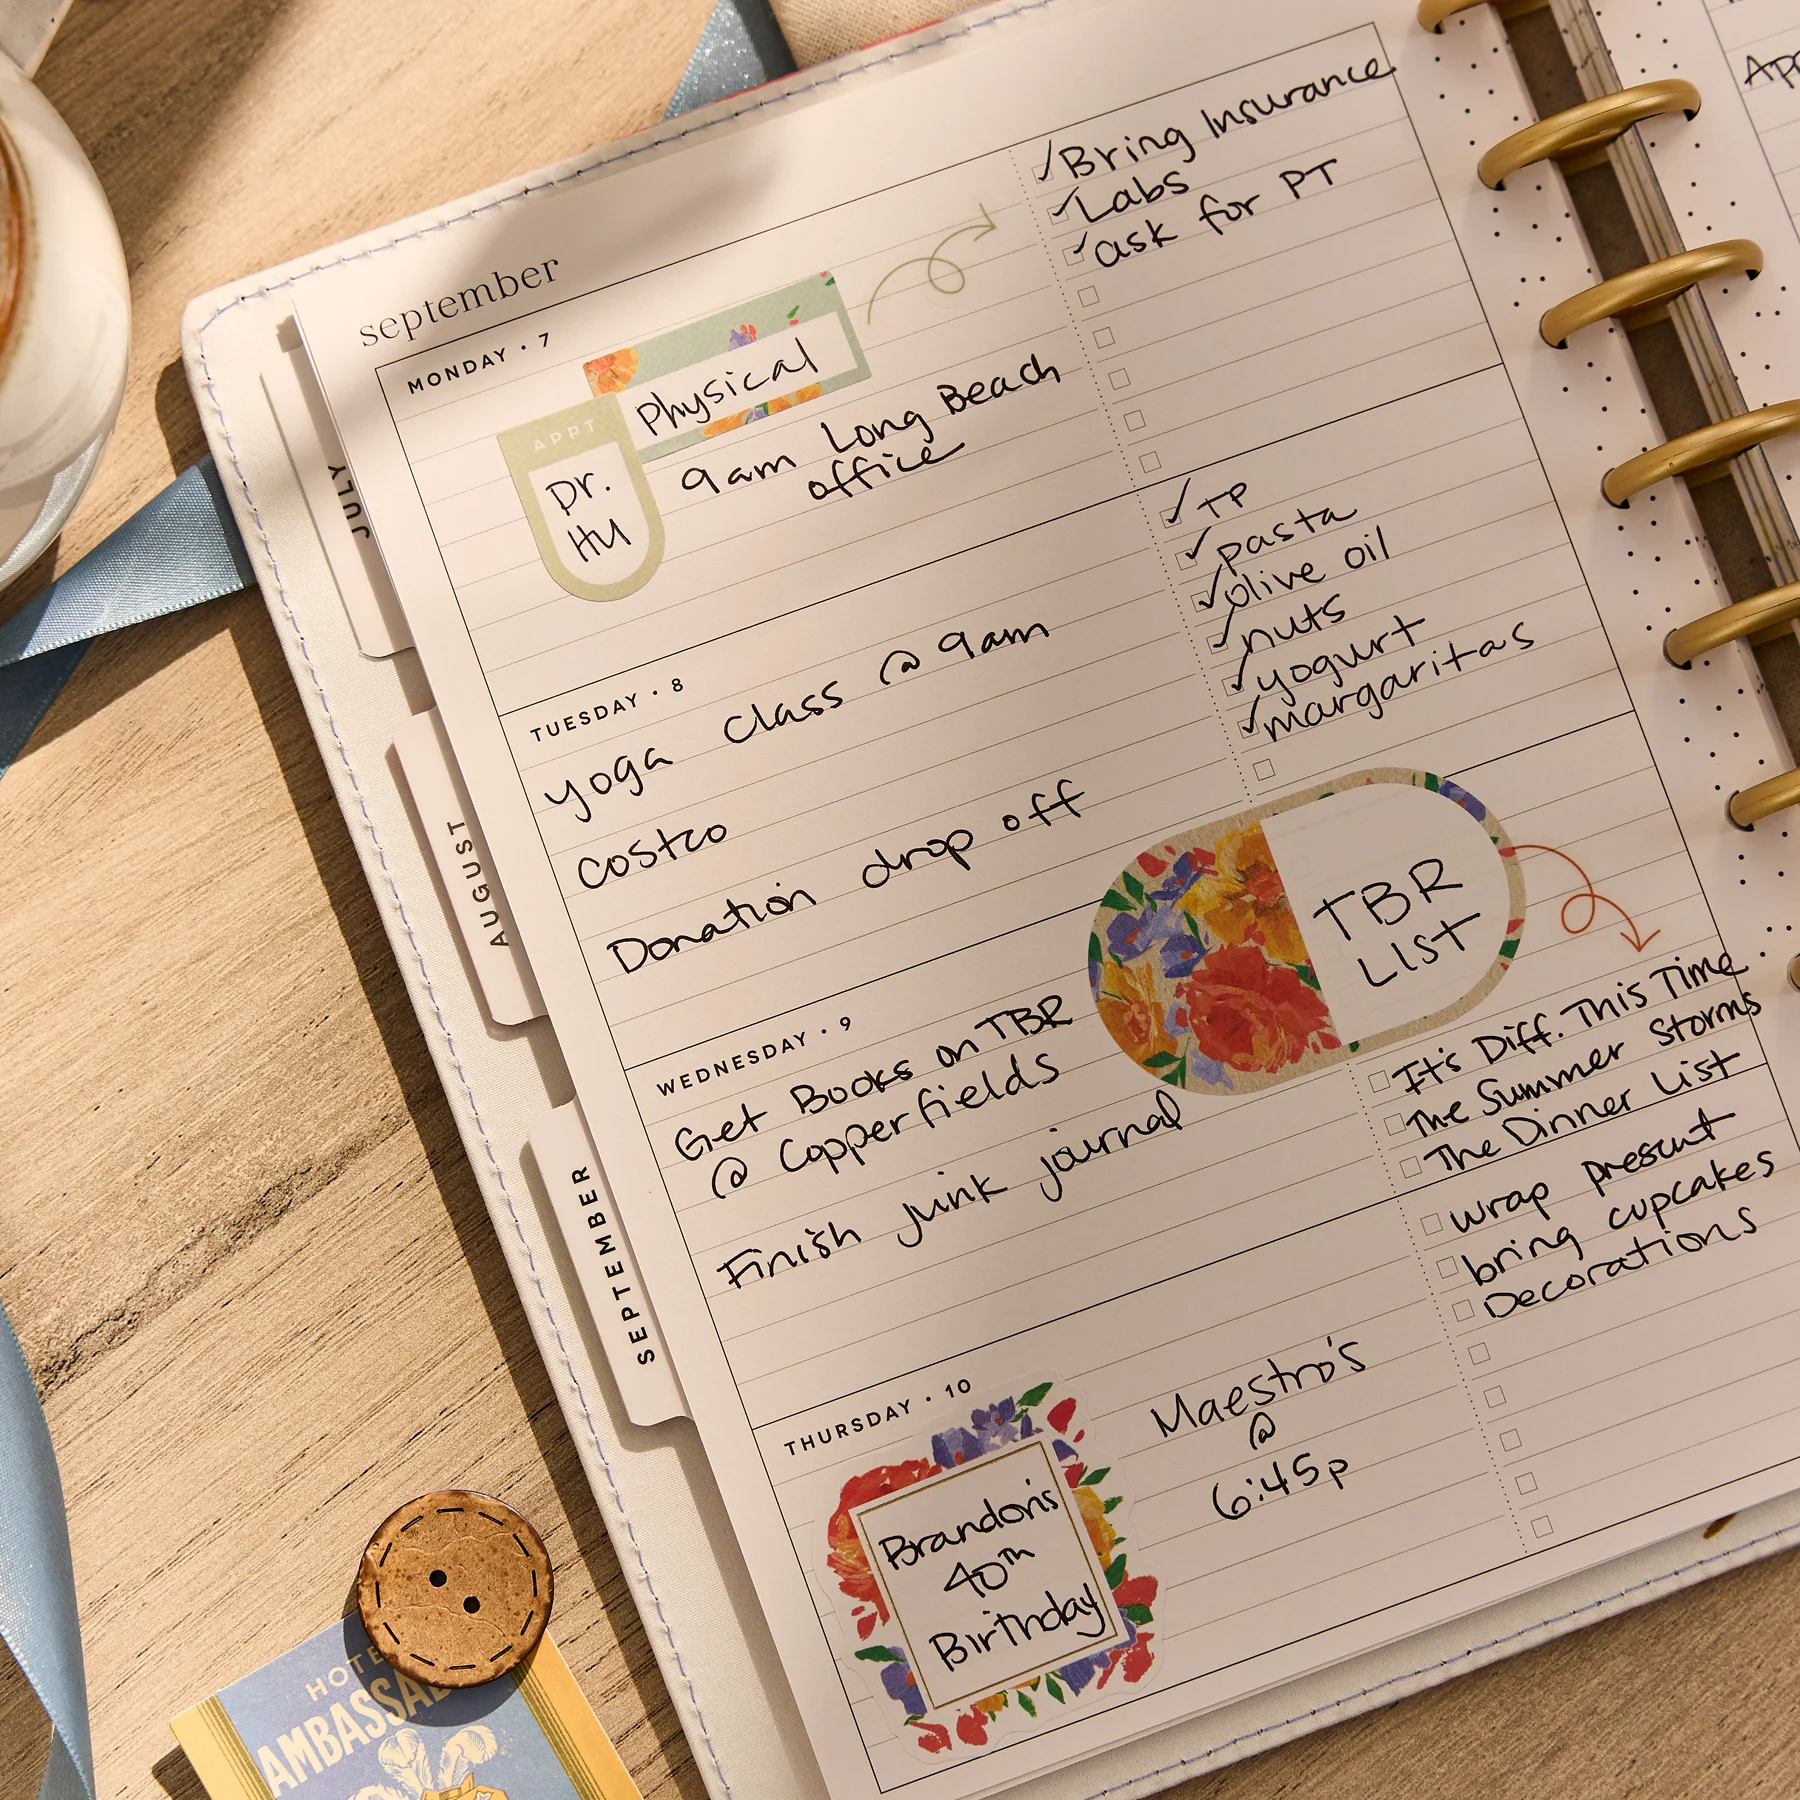 september
MONDAY • 7
APPT
Dr.
HU
Physical
9am Long Beach
office
Bring Insurance
Labs
ask for PT
TUESDAY • 8
yoga class @ 9am
costco
Donation drop off
TP
pasta
olive oil
nuts
yogurt
margaritas
WEDNESDAY • 9
Get Books on TBR
@ Copperfields
Finish junk journal
TBR
List
It's Diff. This Time
The Summer Storms
The Dinner List
THURSDAY • 10
Brandon's
40th
Birthday
Maestro's
@
6:45p
wrap present
bring cupcakes
Decorations
JULY
AUGUST
SEPTEMBER